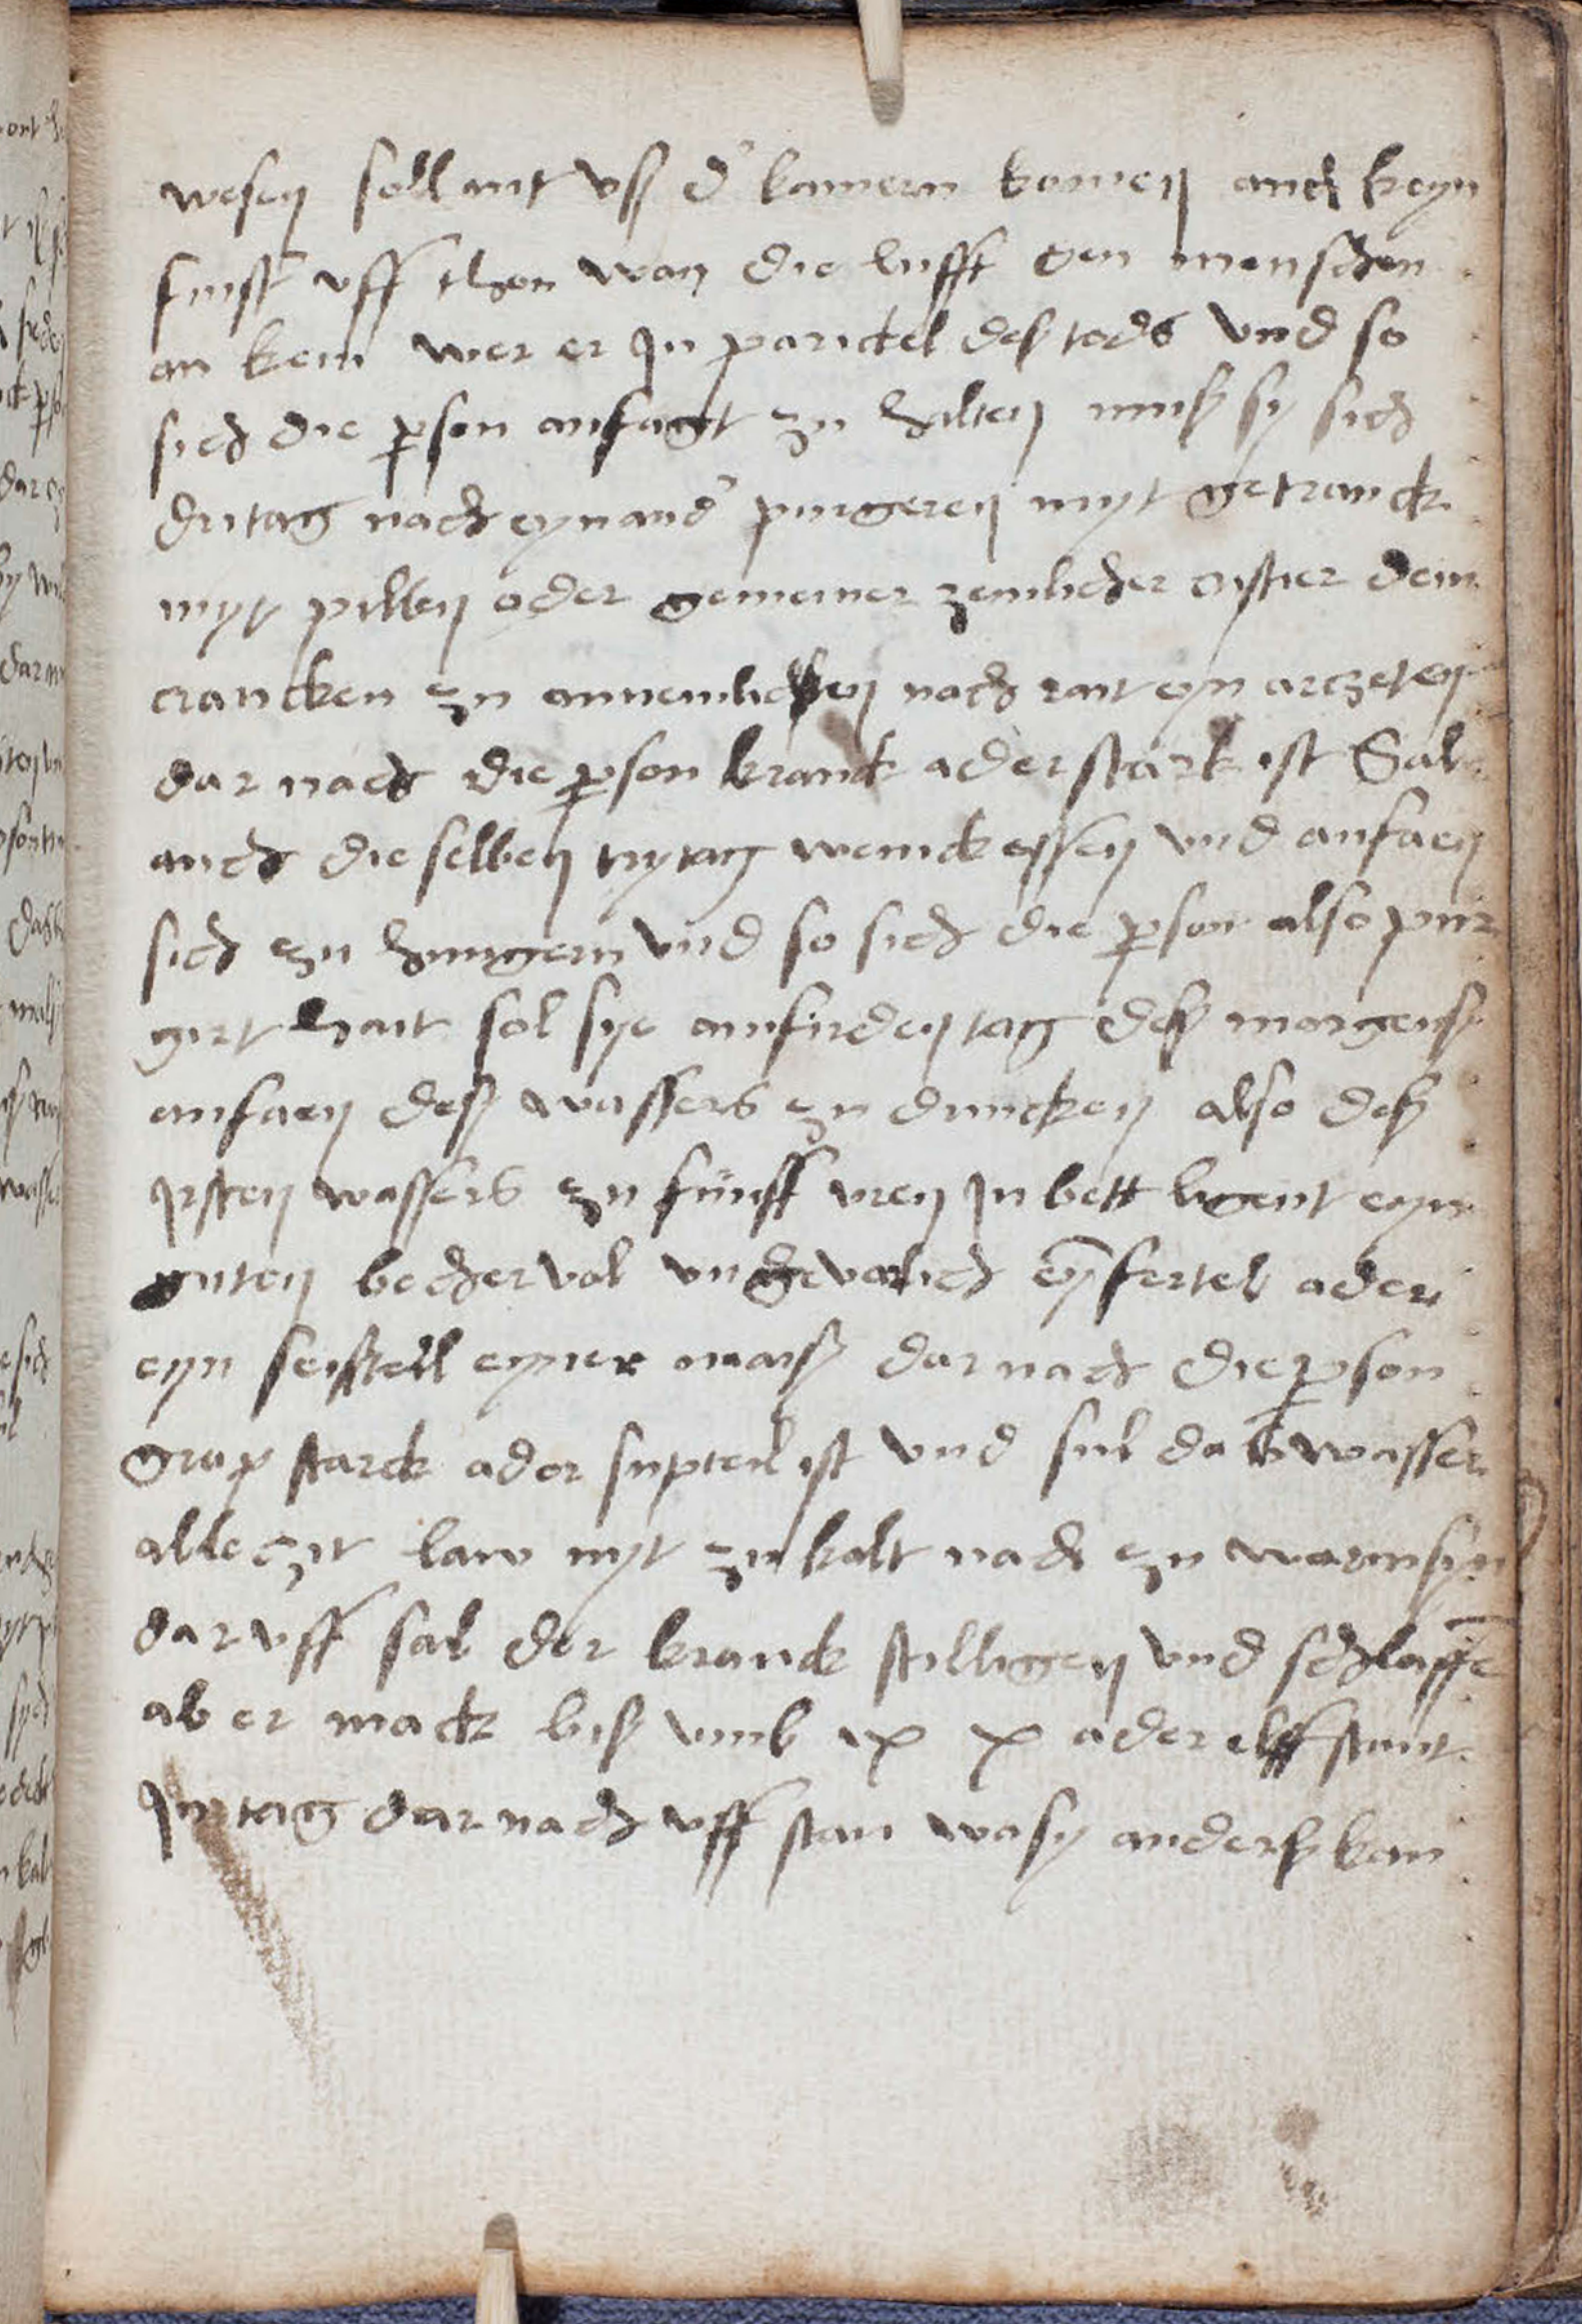 wesen soll nit vss d' kamern komen auch keyn
finst' vff thon wan die lufft den menschen
an kem wer er jn parickel deß tods vnd so
sich die person anfagt zu halten muß sy sich
dri tag nach eynand' purgeren myt getranck
myt pillen oder gemeiner zemlicher cristier dem
crancken zu annemlichen nach rait eyn arczeten
dar nach die person kranck ader starck ist Sal
auch die selben try tag wenick essen vnd anfaen
sich zu hungern vnd so sich die person also pur
girt hait sol sye am firden tag deß morgenß
anfaen deß wassers zu drincken also deß
jrsten wassers zu fünff vren jn bett ligent eyn
guten becher vol vngeverlich eyn fertel ader
eyn seistell eyner maiß dar nach die person
grap starck ader supteil ist vnd sul daß wasser
alle czit law nyt zu kalt nach zu warm syn
dar vff sal der kranck stil ligen vnd schlaffen
ab er mack biß vmb ix x ader elff stunt
jm tag dar nach vff stan wo sy anderß kan